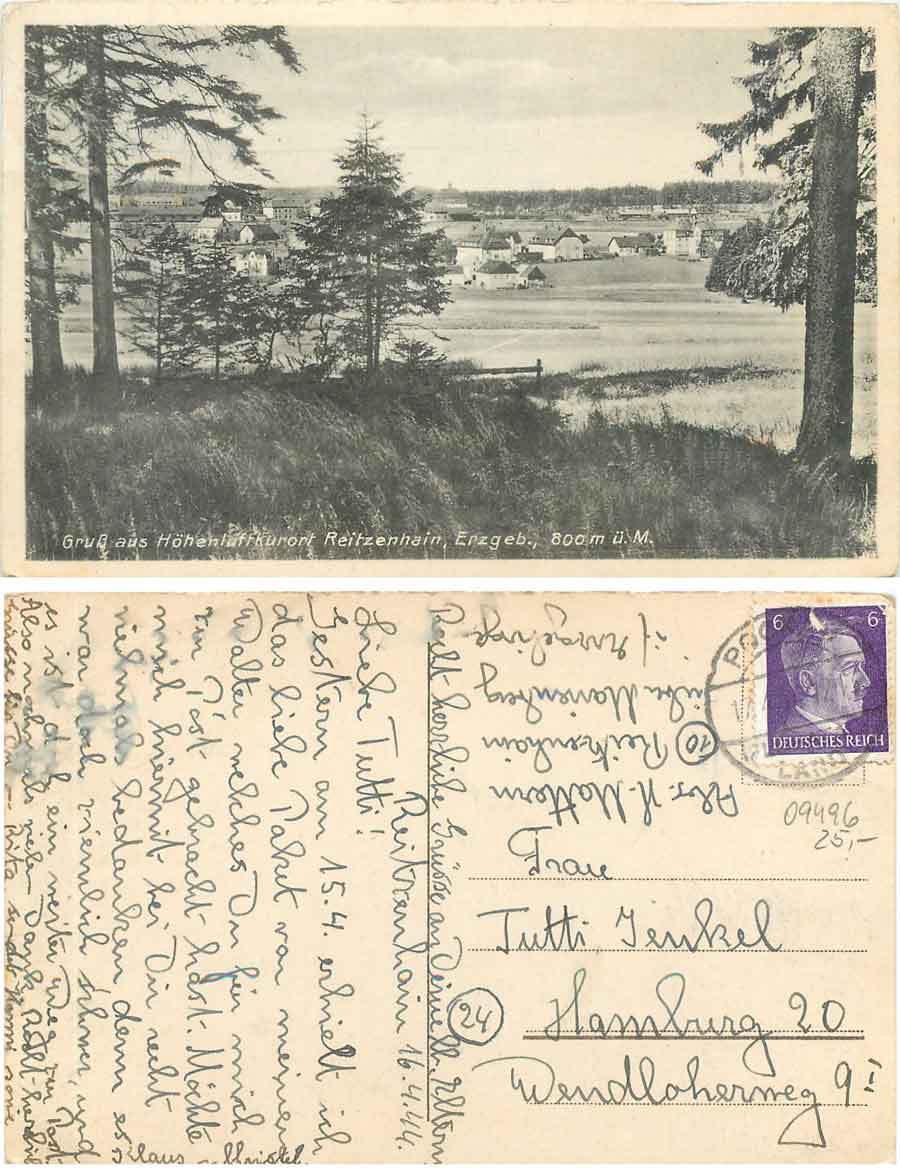 Gruß aus Höhenluftkurort Reitzenhain, Erzgeb., 800 m ü. M.
Reitzenhain 16.4.44.
Liebe Tutti!
Gestern am 15.4. erhielt ich
das liebe Paket von meinem
Walter welches Du für mich
zur Post gebracht hast. Möchte
mich hiermit bei Dir recht
vielmals bedanken denn es
war doch ziemlich schwer, und
es ist doch ein weiter Weg zur Post.
Also nochmals vielen Dank. Recht herzl.
Klaus Christel
Recht herzliche Grüsse an Deine lb. Eltern
Abs. H. Mattern
10 Reitzenhain
über Marienberg
i/ Erzgebirge
6 6
DEUTSCHES REICH
LAND
09496
25,-
Frau
Tutti Jenkel
24 Hamburg 20
Wendloherweg 9